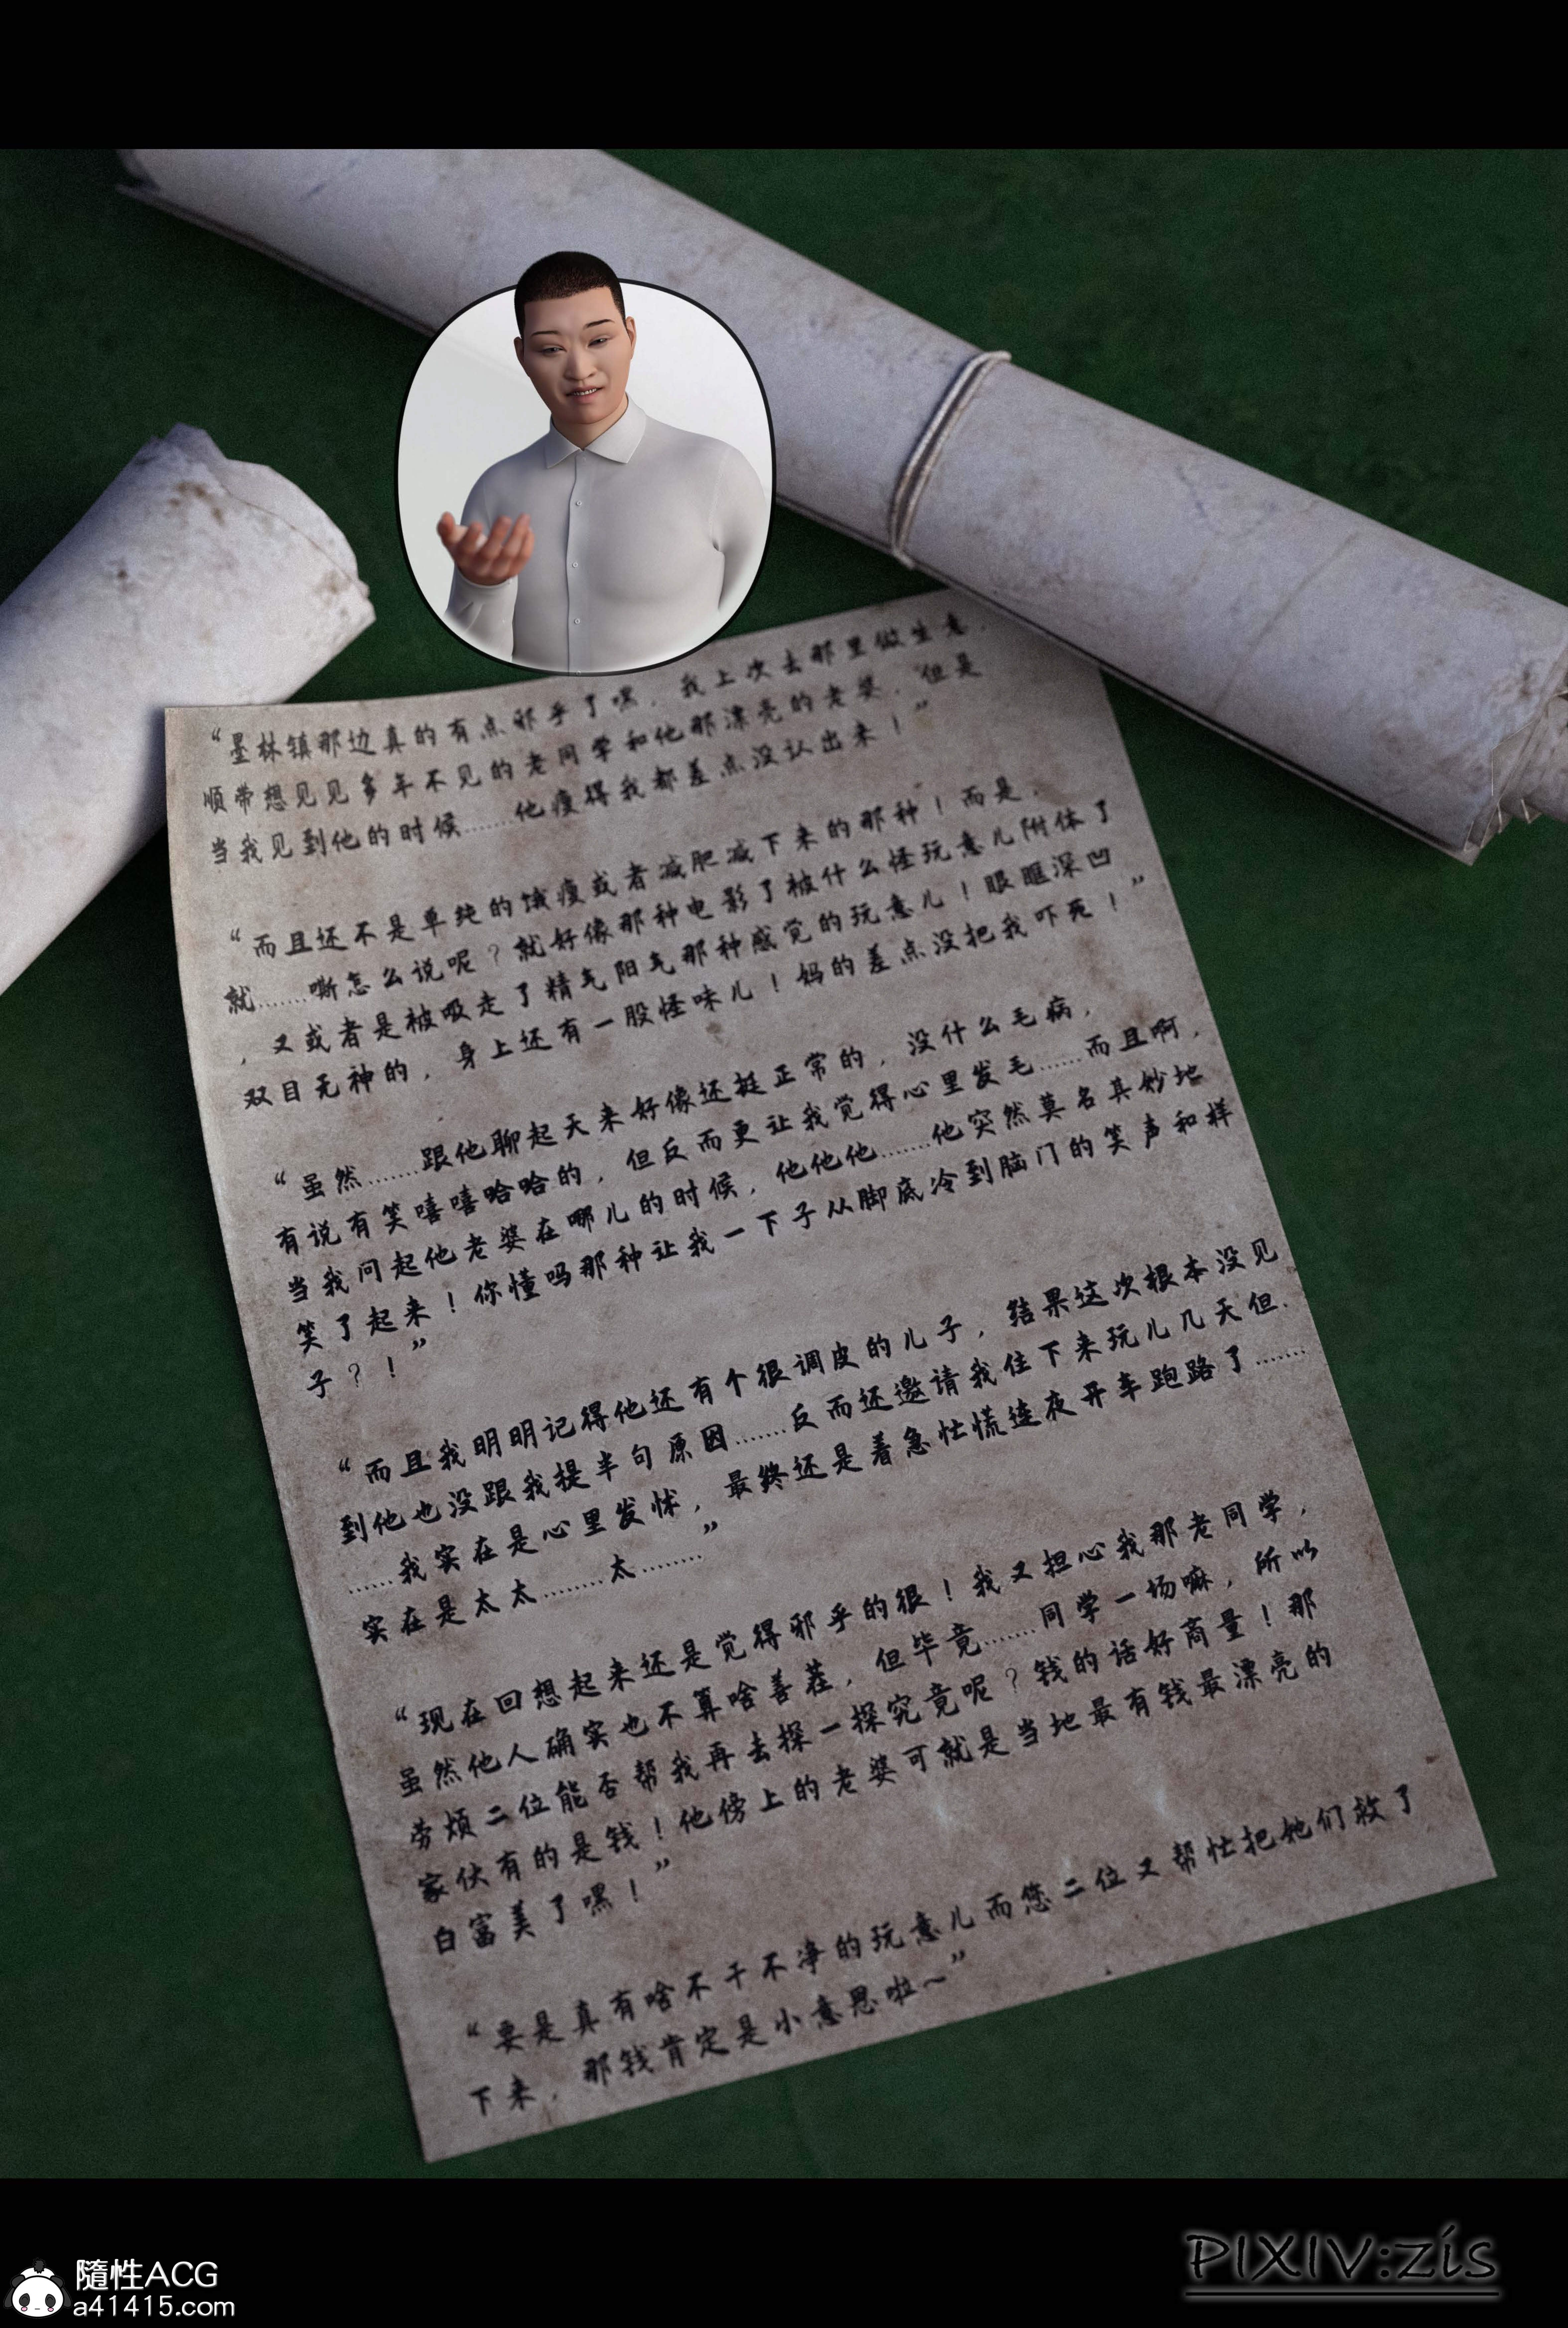 “墨林镇那边真的有点邪乎了嘿，我上次去那里做生意，
顺带想见见多年不见的老同学和他那漂亮的老婆，但是
当我见到他的时候……他瘦得我都差点没认出来！”
“而且还不是单纯的饿瘦或者减肥减下来的那种！而是，
就……嘶怎么说呢？就好像那种电影了被什么怪玩意儿附体了
，又或者是被吸走了精气阳气那种感觉的玩意儿！眼眶深凹
双目无神的，身上还有一股怪味儿！妈的差点没把我吓死！”
“虽然……跟他聊起天来好像还挺正常的，没什么毛病，
有说有笑嘻嘻哈哈的，但反而更让我觉得心里发毛……而且啊，
当我问起他老婆在哪儿的时候，他他他……他突然莫名其妙地
笑了起来！你懂吗那种让我一下子从脚底冷到脑门的笑声和样
子？！”
“而且我明明记得他还有个很调皮的儿子，结果这次根本没见
到他也没跟我提半句原因……反而还邀请我住下来玩儿几天但.
……我实在是心里发怵，最终还是着急忙慌连夜开车跑路了……
实在是太太……太……”
“现在回想起来还是觉得邪乎的很！我又担心我那老同学，
虽然他人确实也不算啥善茬，但毕竟……同学一场嘛，所以
劳烦二位能否帮我再去探一探究竟呢？钱的话好商量！那
家伙有的是钱！他傍上的老婆可就是当地最有钱最漂亮的
白富美了嘿！”
“要是真有啥不干不净的玩意儿而您二位又帮忙把她们救了
下来，那钱肯定是小意思啦~”
隨性ACG
a41415.com
PIXIV:zis